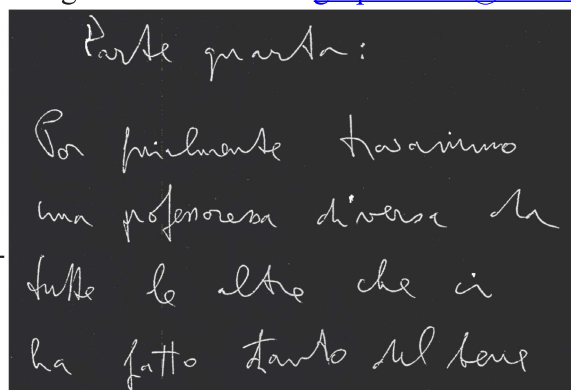 Parte quarta:
Poi finalmente trovammo
una professoressa diversa da
tutte le altre che ci
ha fatto tanto del bene